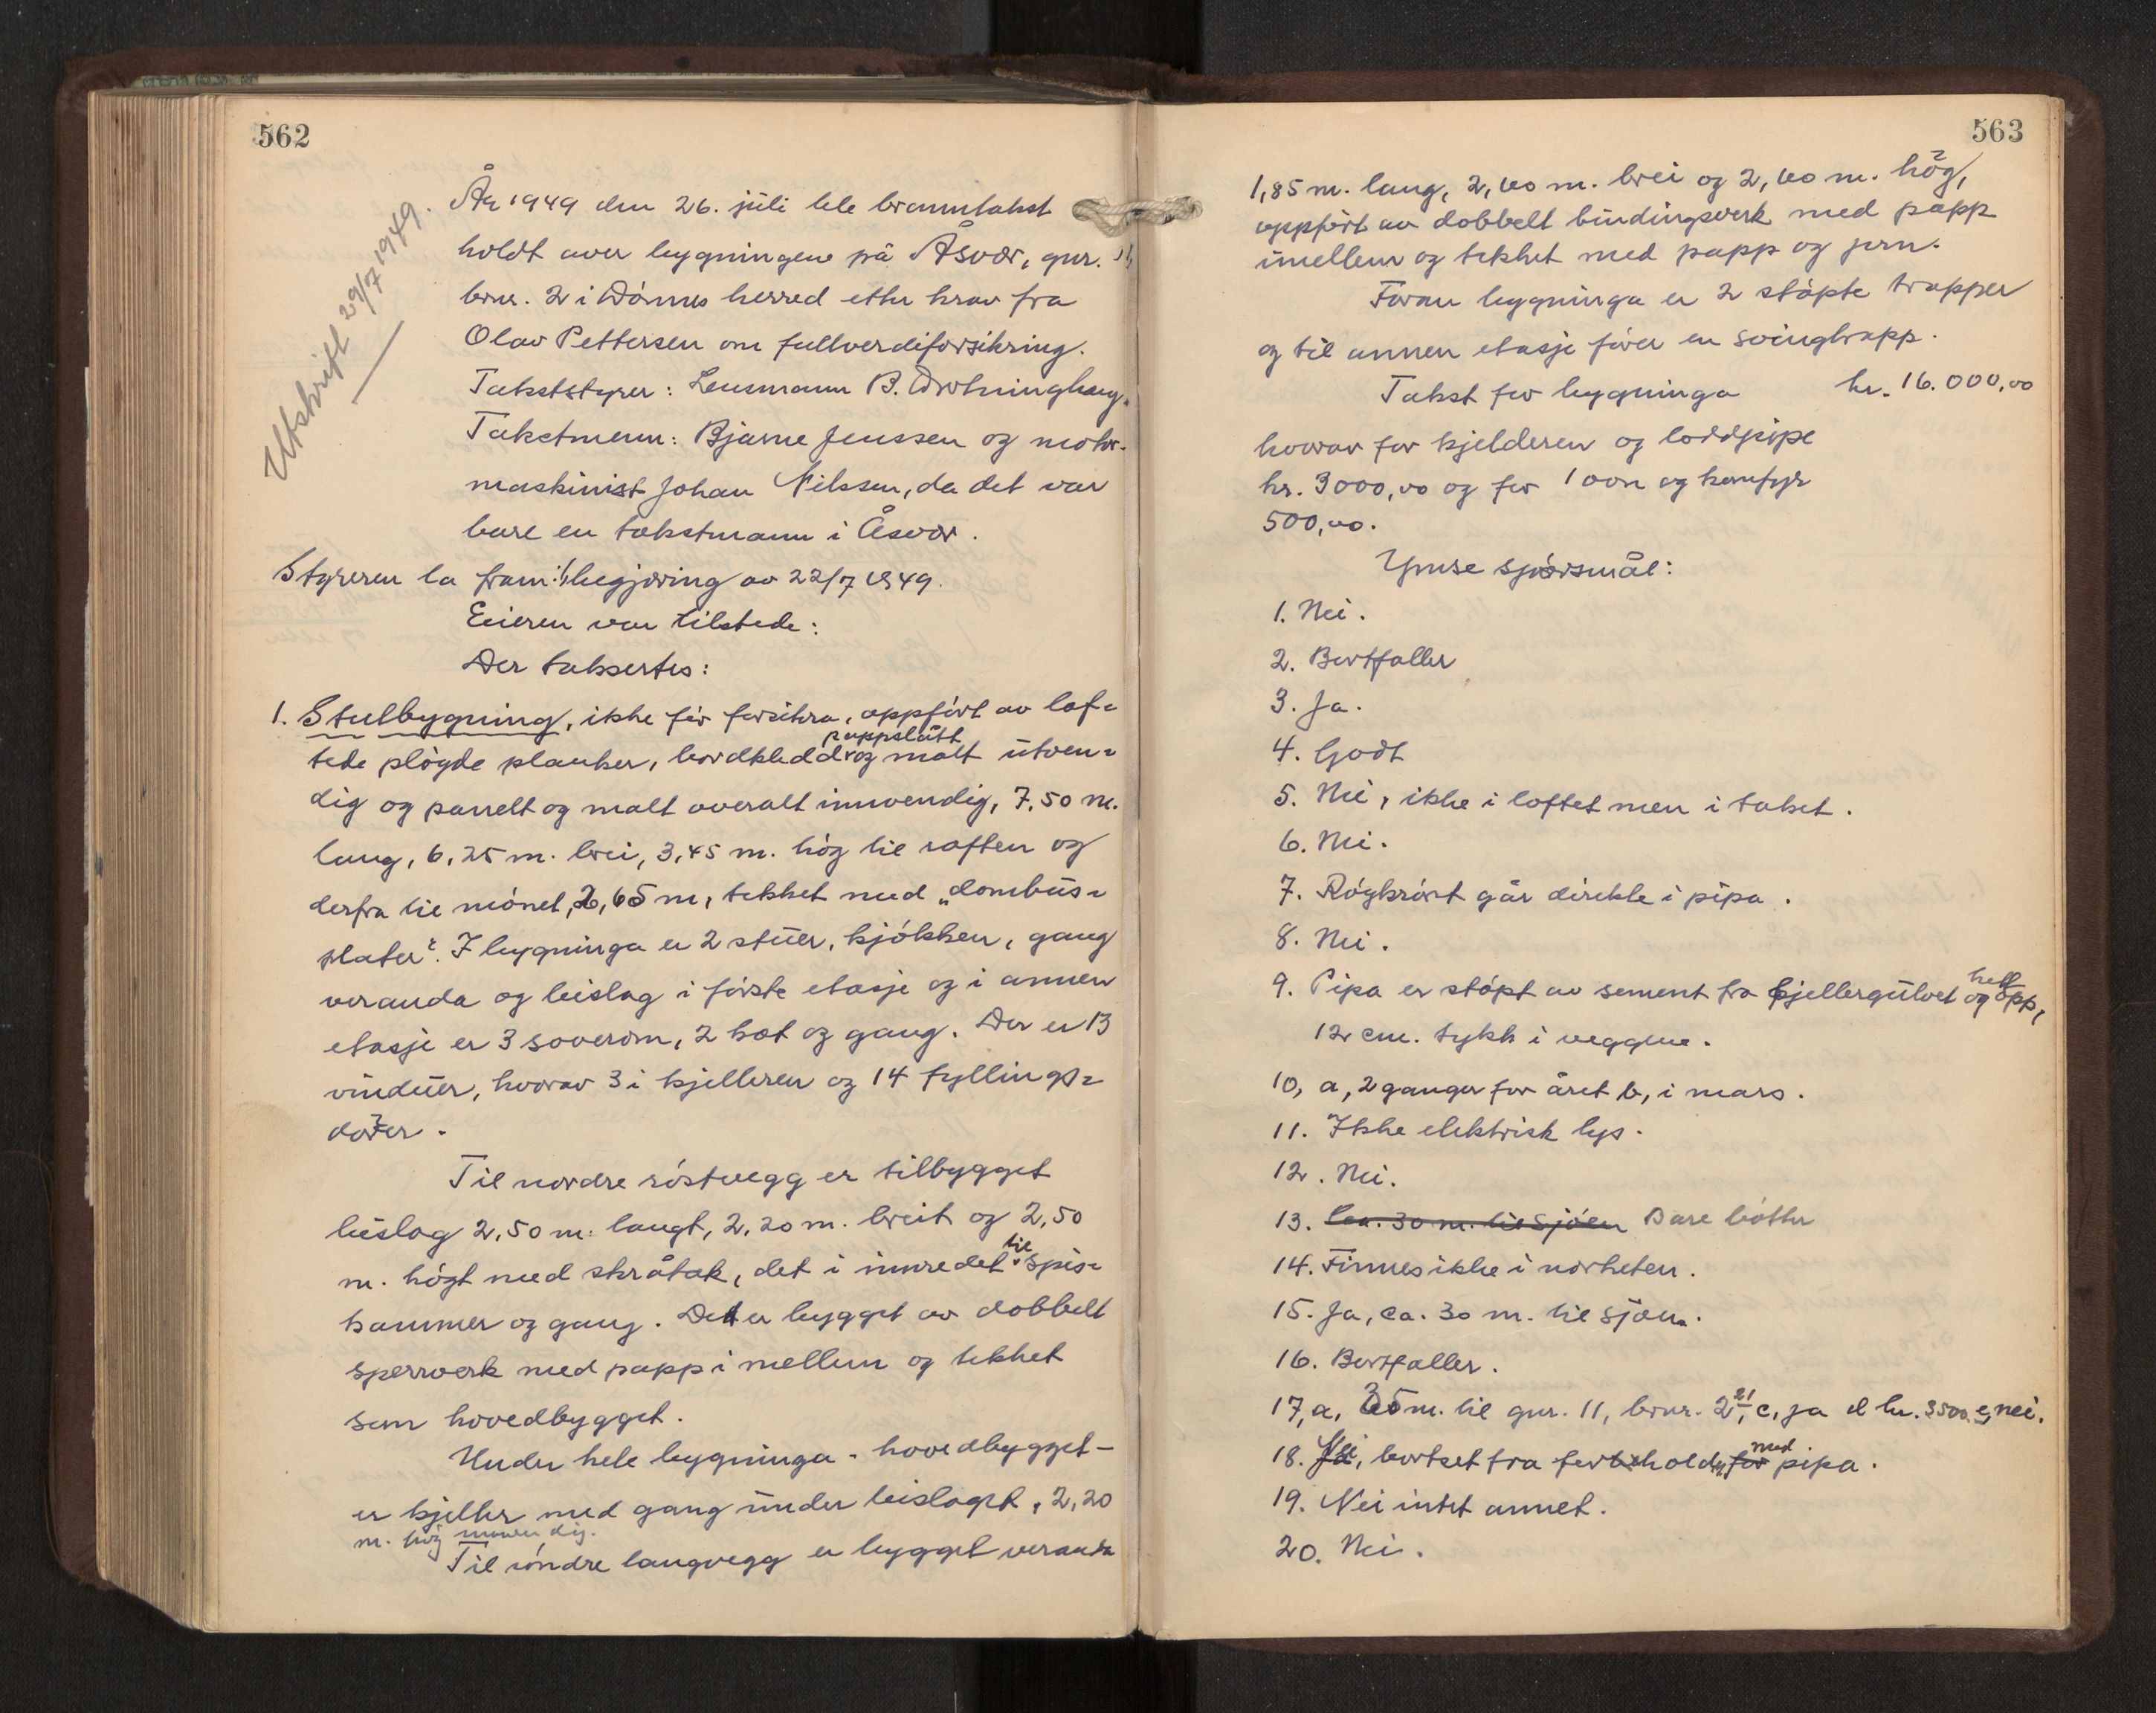 562
Utskrift 29/7 1949.
År 1949 den 26. juli ble branntakst
holdt over bygningene på Åsvær, gnr. 11
brnr. 2 i Dönnes herred etter krav fra
Olav Pettersen om fullverdiforsikring.
Takststyrer: Lensmann B. Drotninghaug.
Takstmenn: Bjarne Jenssen og motor-
maskinist Johan Nilssen, da det var
bare en takstmann i Åsvær.
Styreren la fram: 1, begjæring av 22/7 1949.
Eieren var tilstede:
Der taksertes:
1. Stulbygning, ikke för forsikra, oppfört av laf-
tede plögde planker, bordkledd pappslått og malt utven-
dig og panelt og malt overalt innvendig, 7,50 m.
lang, 6,25 m. brei, 3,45 m. hög til raften og
derfra til mönet, 2,65 m, tekket med „dombås-
plater". I bygninga er 2 stuer, kjökken, gang
veranda og bislag i förste etasje og i annen
etasje er 3 soverom, 2 kot og gang. Der er 13
vinduer, hvorav 3 i kjelleren og 14 fyllings-
dörer.
Til nordre röstvegg er tilbygget
bislag 2,50 m. langt, 2,20 m. breit og 2,50
m. högt med skråtak, det i innredet til spis-
kammer og gang. Det er bygget av dobbelt
sperrverk med papp i mellem og tekket
som hovedbygget.
Under hele bygninga - hovedbygget -
er kjeller med gang under bislaget, 2,20
m. hög innvendig.
Til söndre langvegg er bygget veranda
563
1,85 m. lang, 2,40 m. brei og 2,40 m. hög,
oppfört av dobbelt bindingsverk med papp
imellem og tekket med papp og jern.
Foran bygninga er 2 stöpte trapper
og til annen etasje förer en svingtrapp.
Takst for bygninga kr. 16.000,00
hvorav for kjelderen og loddpipe
kr. 3000,00 og for 1 ovn og komfyr
500,00.
Ymse spörsmål:
1. Nei.
2. Bortfaller
3. Ja.
4. Godt
5. Nei, ikke i loftet men i taket.
6. Nei.
7. Rögkröret går direkte i pipa.
8. Nei.
9. Pipa er stöpt av sement fra kjellergulvet og helt opp,
12 cm. tykk i veggene.
10, a, 2 ganger for året b, i mars.
11. Ikke elektrisk lys.
12. Nei.
13. Ca. 30 m. til sjöen Bare bötter
14. Finnes ikke i nærheten.
15. Ja, ca. 30 m. til sjöen.
16. Bortfaller.
17, a, 35 m. til gnr. 11, brnr. 2, 21 c, ja d kr. 3500 e, nei.
18. Nei, bortset fra forbehold med for pipa.
19. Nei intet annet.
20. Nei.